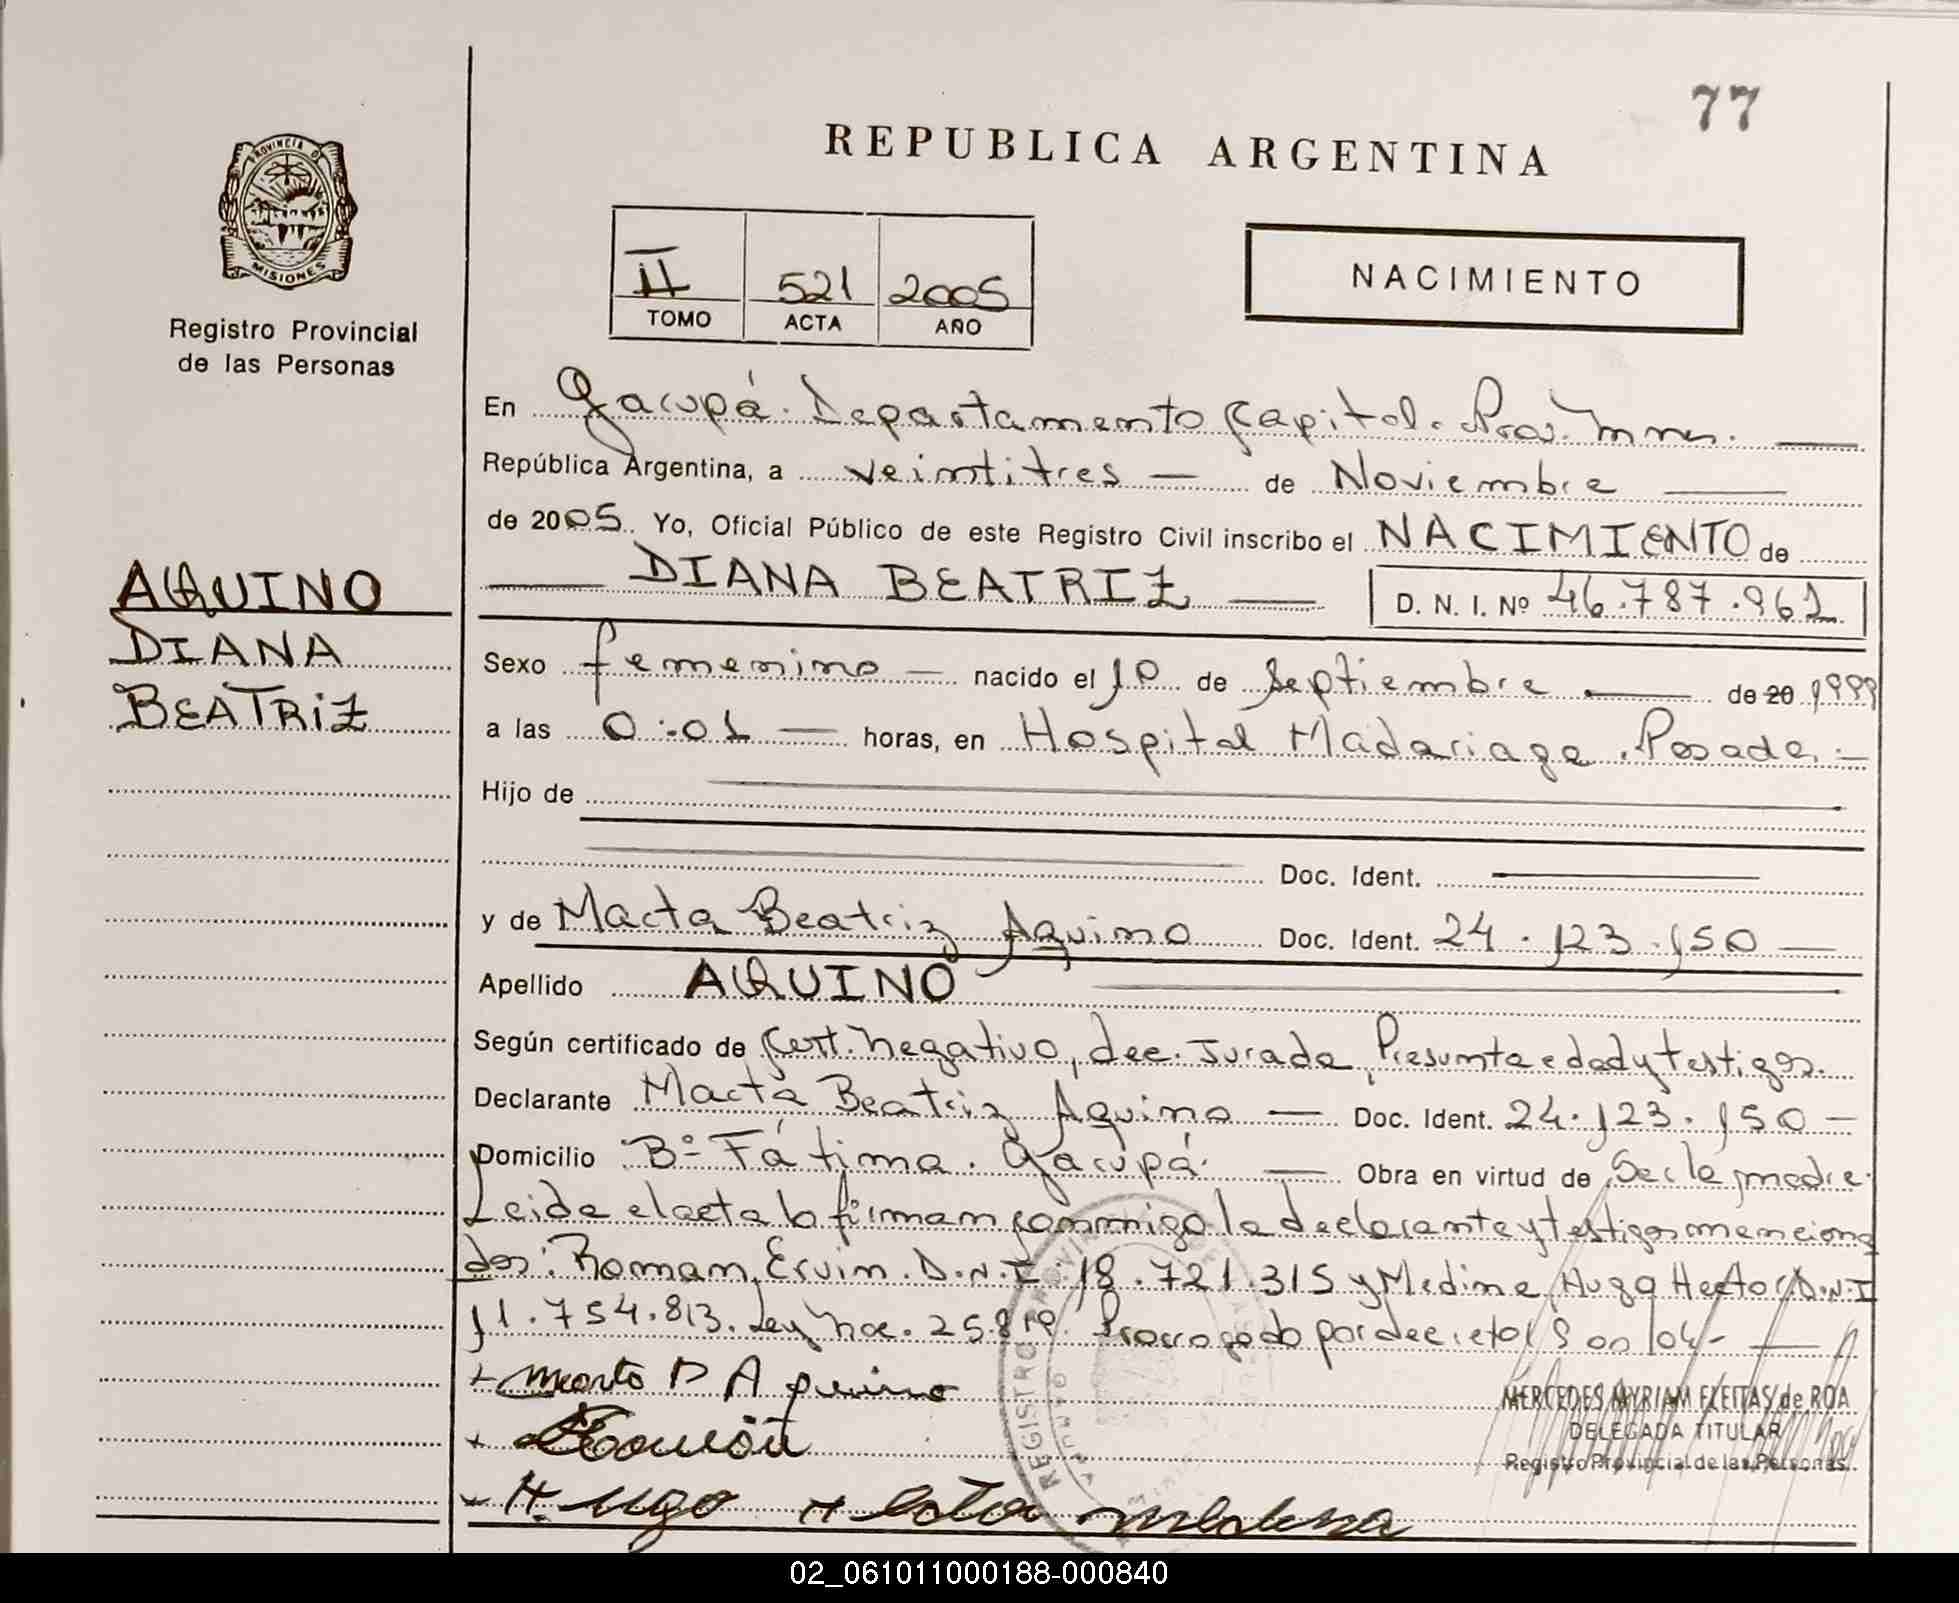 77
REPUBLICA ARGENTINA
PROVINCIA DE
MISIONES
Registro Provincial
de las Personas
II 521 2005
TOMO ACTA AÑO
NACIMIENTO
En Garupá. Departamento Capital. Prov. Mnes.
República Argentina, a veintitres de Noviembre
de 2005 Yo, Oficial Público de este Registro Civil inscribo el NACIMIENTO de
DIANA BEATRIZ D. N. I. Nº 46.787.961
AQUINO
DIANA
BEATRIZ
Sexo femenino nacido el 10 de Septiembre de 20 1999
a las 0:01 horas, en Hospital Madariaga. Posadas
Hijo de
Doc. Ident.
y de Marta Beatriz Aquino Doc. Ident. 24.123.150
Apellido AQUINO
Según certificado de Cert. negativo, dec. Jurada, Presunta edad y testigos.
Declarante Marta Beatriz Aquino Doc. Ident. 24.123.150
Domicilio Bº Fátima. Garupá. Obra en virtud de Ser la madre.
Leida el acta la firman conmigo la declarante y testigos menciona
dos: Roman, Ervin. D.N.I. 18.721.315 y Medina, Hugo Hector D.N.I
11.754.813. Ley nac. 25.819. Prorrogado por decreto
Marta B Aquino
Hugo Hector Medina
MERCEDES MYRIAM FLEITAS de ROA
DELEGADA TITULAR
Registro Provincial de las Personas
REGISTRO PROVINCIAL DE LAS
02_061011000188-000840